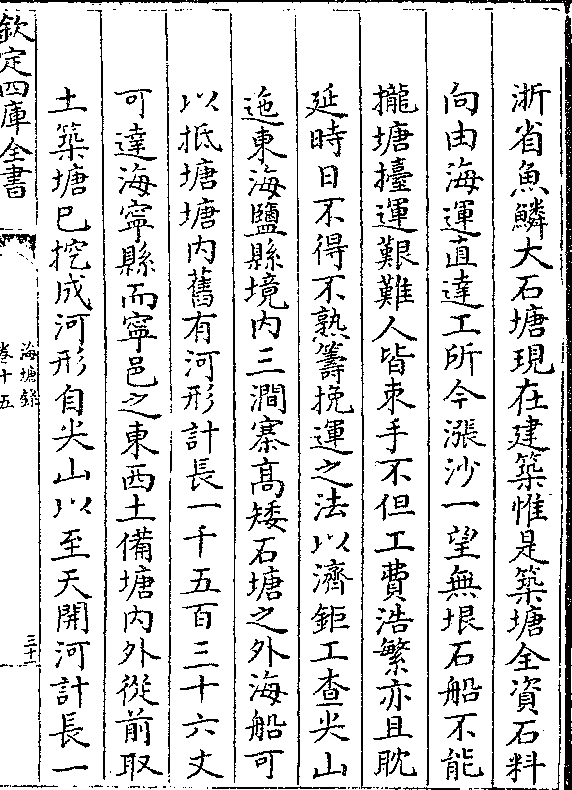 浙省魚鱗大石塘現在建築惟是築塘全資石料
向由海運直達工所今漲沙一望無垠石船不能
攏塘擡運艱難人皆朿手不但工費浩繁亦且耽
延時日不得不熟籌挽運之法以濟鉅工查尖山
迤東海鹽縣境内三澗寨髙矮石塘之外海船可
以抵塘塘内舊有河形計長一千五百三十六丈
可達海寧縣而寧邑之東西土備塘内外從前取
土築塘已挖成河形自尖山以至天開河計長一
欽定四庫全書
海塘錄
卷十五
三十二